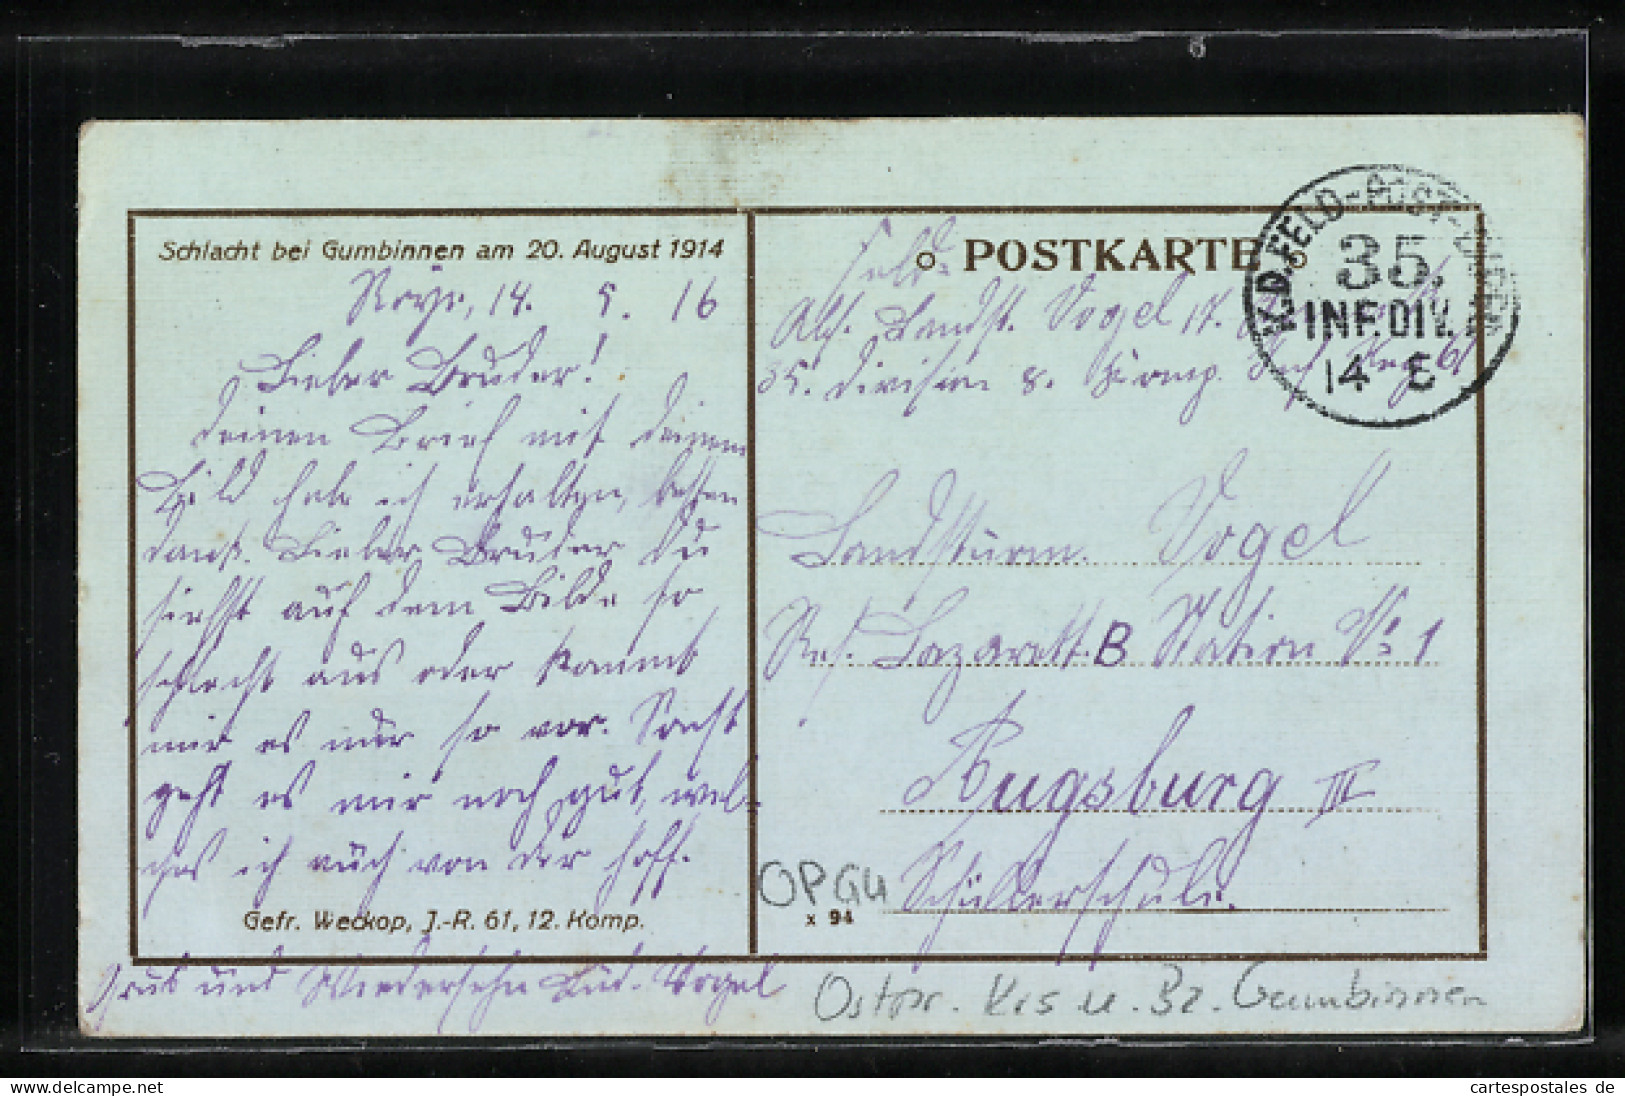 Schlacht bei Gumbinnen am 20. August 1914
Roye, 14. 5. 16
Lieber Bruder!
Deinen Brief mit deinem
Bild habe ich erhalten, besten
Dank. Lieber Bruder Du
siehst auf dem Bilde so
schlecht aus oder kommt
mir es nur so vor. Sonst
geht es mir noch gut, wel-
ches ich auch von dir hoff.
Gefr. Weckop, J.-R. 61, 12. Komp.
Gruß und Wiedersehn Lud. Vogel
POSTKARTE
Feld-
Abs. Landst. Vogel 17.
35. Division 8. Komp. Inf. Reg 61
K.D. FELD-POST
35.
INF. DIV.
14 5
Landsturm. Vogel
Res. Lazarett. B Station No 1
Augsburg III
Schülerschule.
OPGU
x 94
Ostpr. Krs u. Bz. Gumbinnen
Henry de
cartespostales de